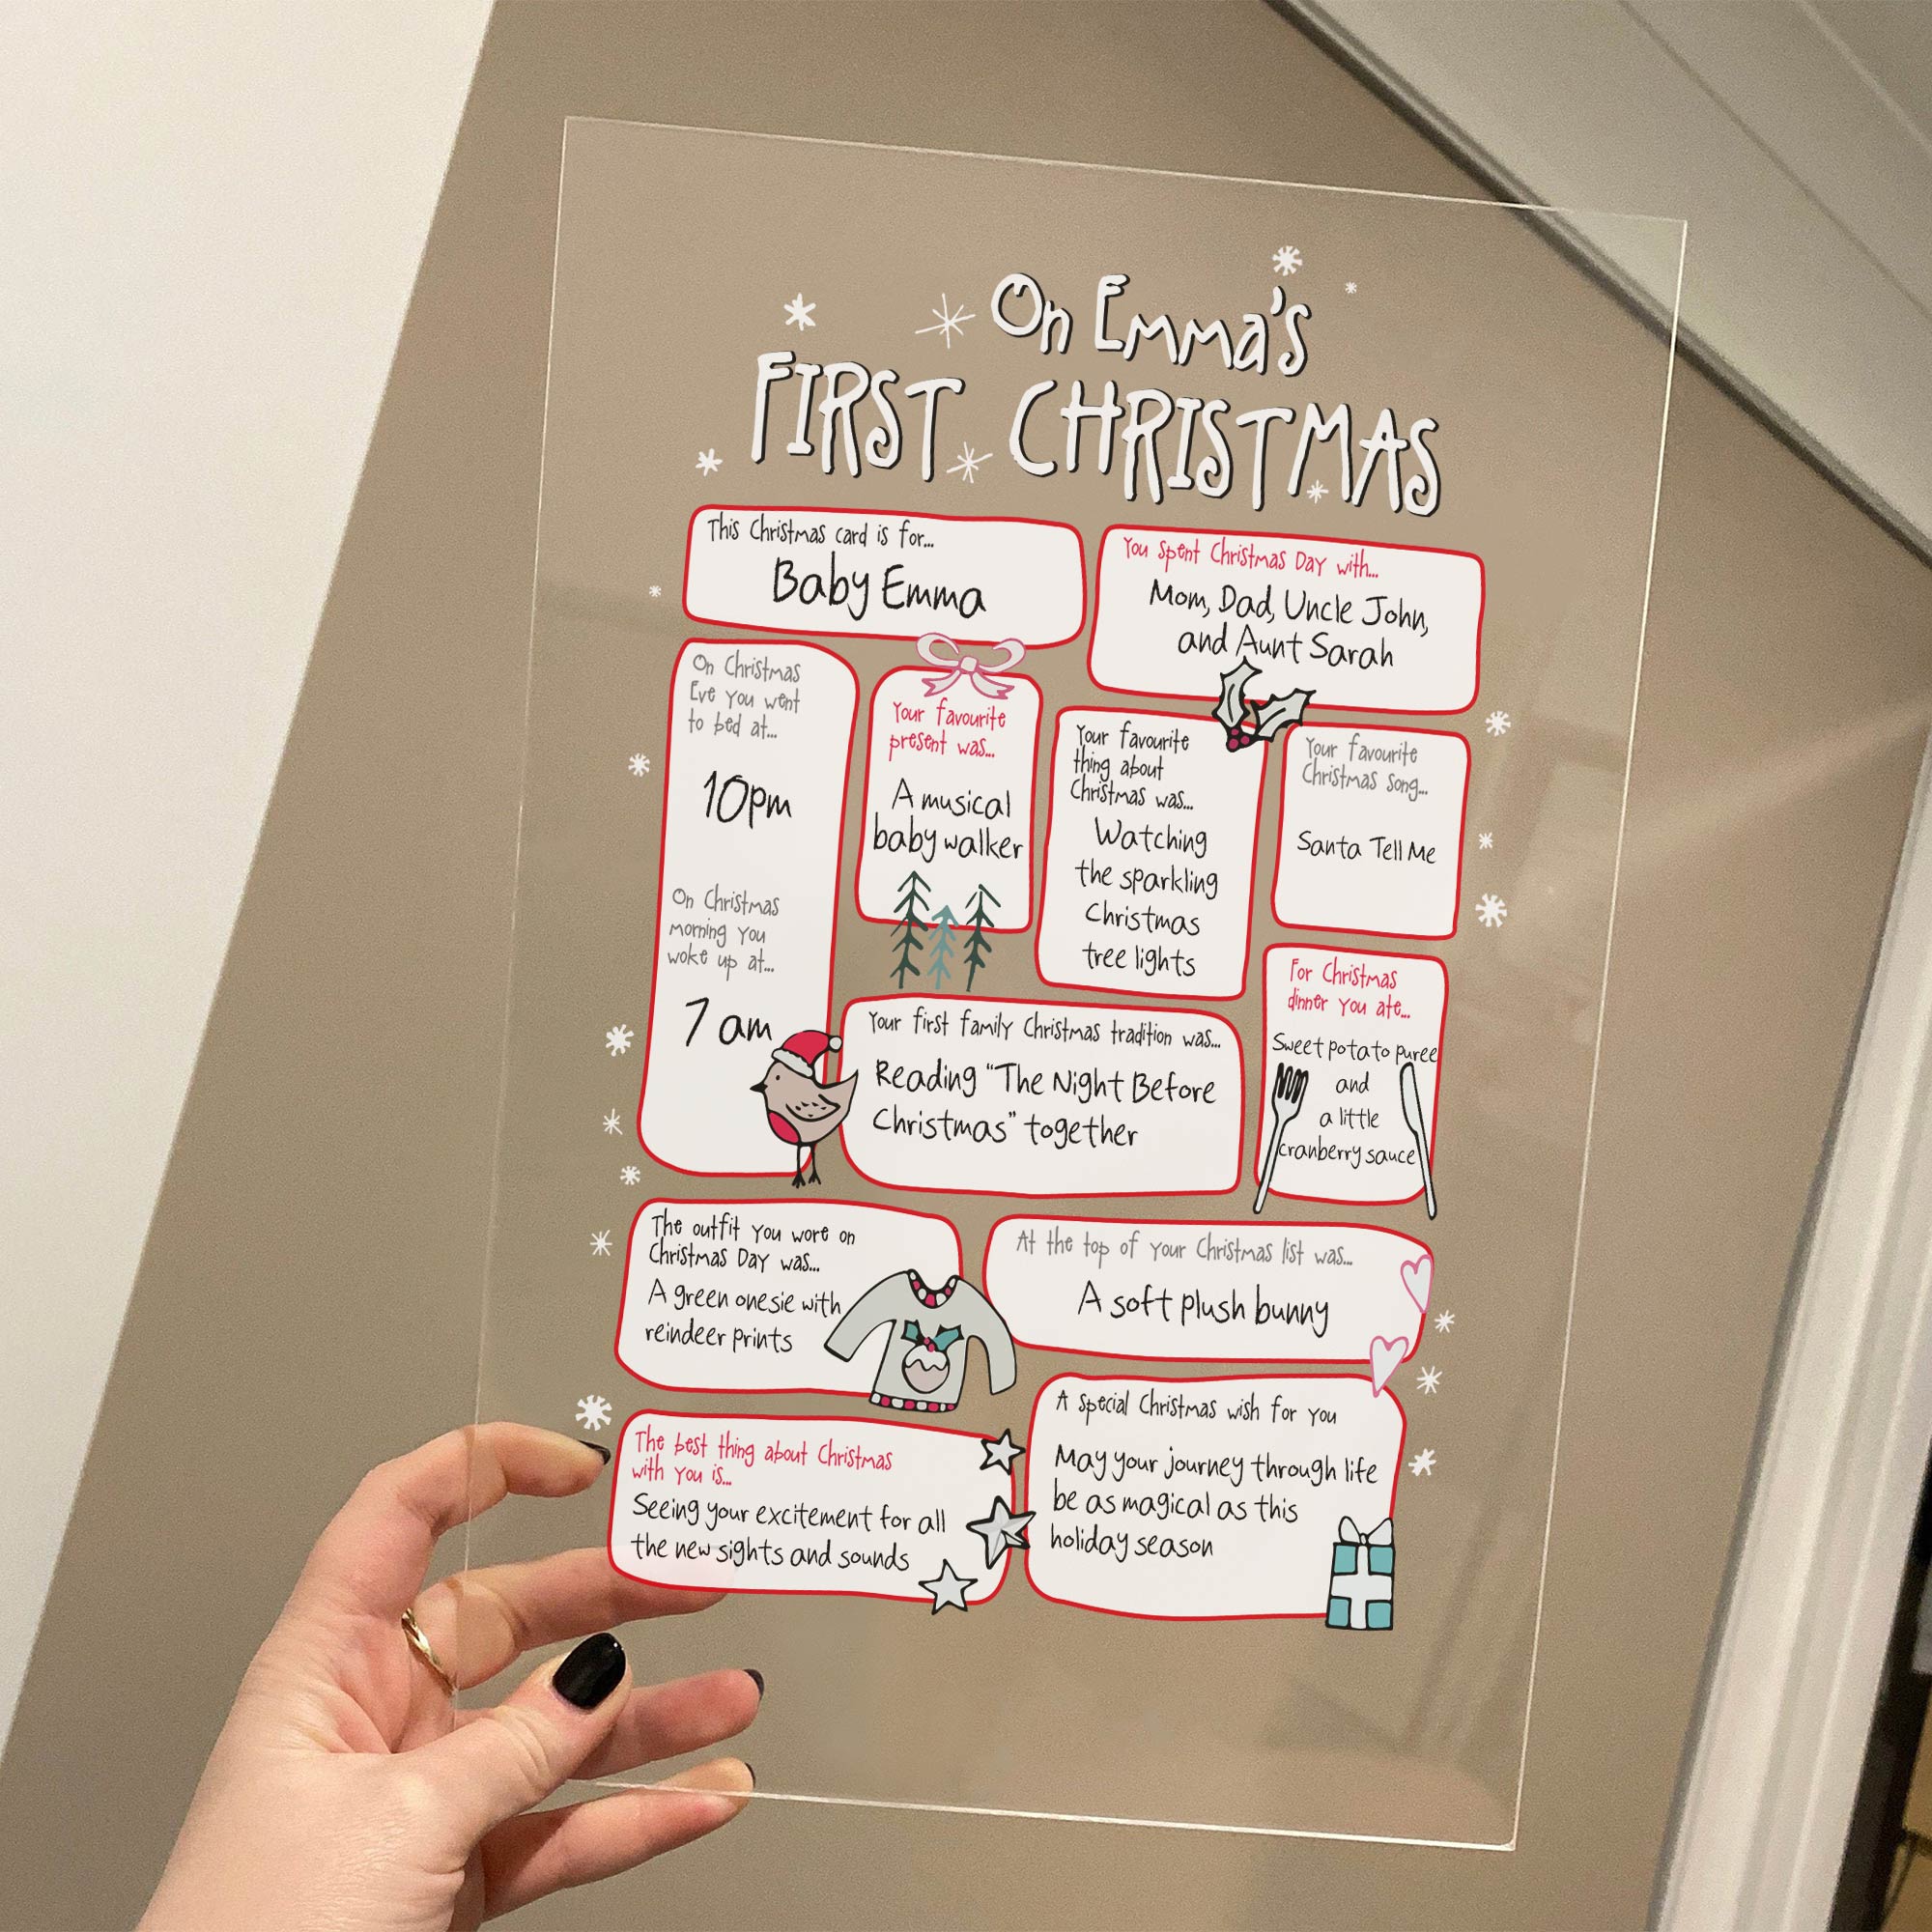 On Emma's
FIRST CHRISTMAS
This Christmas card is for...
Baby Emma
You spent Christmas Day with...
Mom, Dad, Uncle John,
and Aunt Sarah
On Christmas
Eve you went
to bed at...
10pm
On Christmas
morning you
woke up at...
7 am
Your favourite
present was...
A musical
baby walker
Your favourite
thing about
Christmas was...
Watching
the sparkling
Christmas
tree lights
Your favourite
Christmas song...
Santa Tell Me
For Christmas
dinner you ate...
Sweet potato puree
and
a little
cranberry sauce
Your first family Christmas tradition was...
Reading "The Night Before
Christmas" together
The outfit you wore on
Christmas Day was...
A green onesie with
reindeer prints
At the top of your Christmas list was...
A soft plush bunny
The best thing about Christmas
with you is...
Seeing your excitement for all
the new sights and sounds
A special Christmas wish for you
May your journey through life
be as magical as this
holiday season